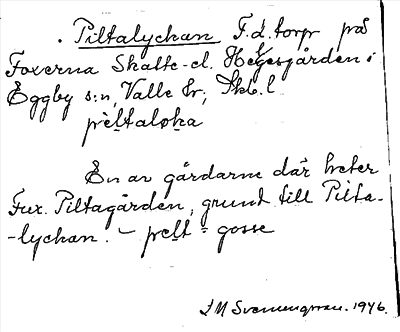 . Piltalychan F.d. torp på
Foxerna Skatte-el. Hegesgården i
Eggby s:n, Valle hr; Skb. l.
pèltaloka
En av gårdarne där heter
Fux. Piltagården, grund till Pilta-
-lychan. - pelt = gosse
1946.